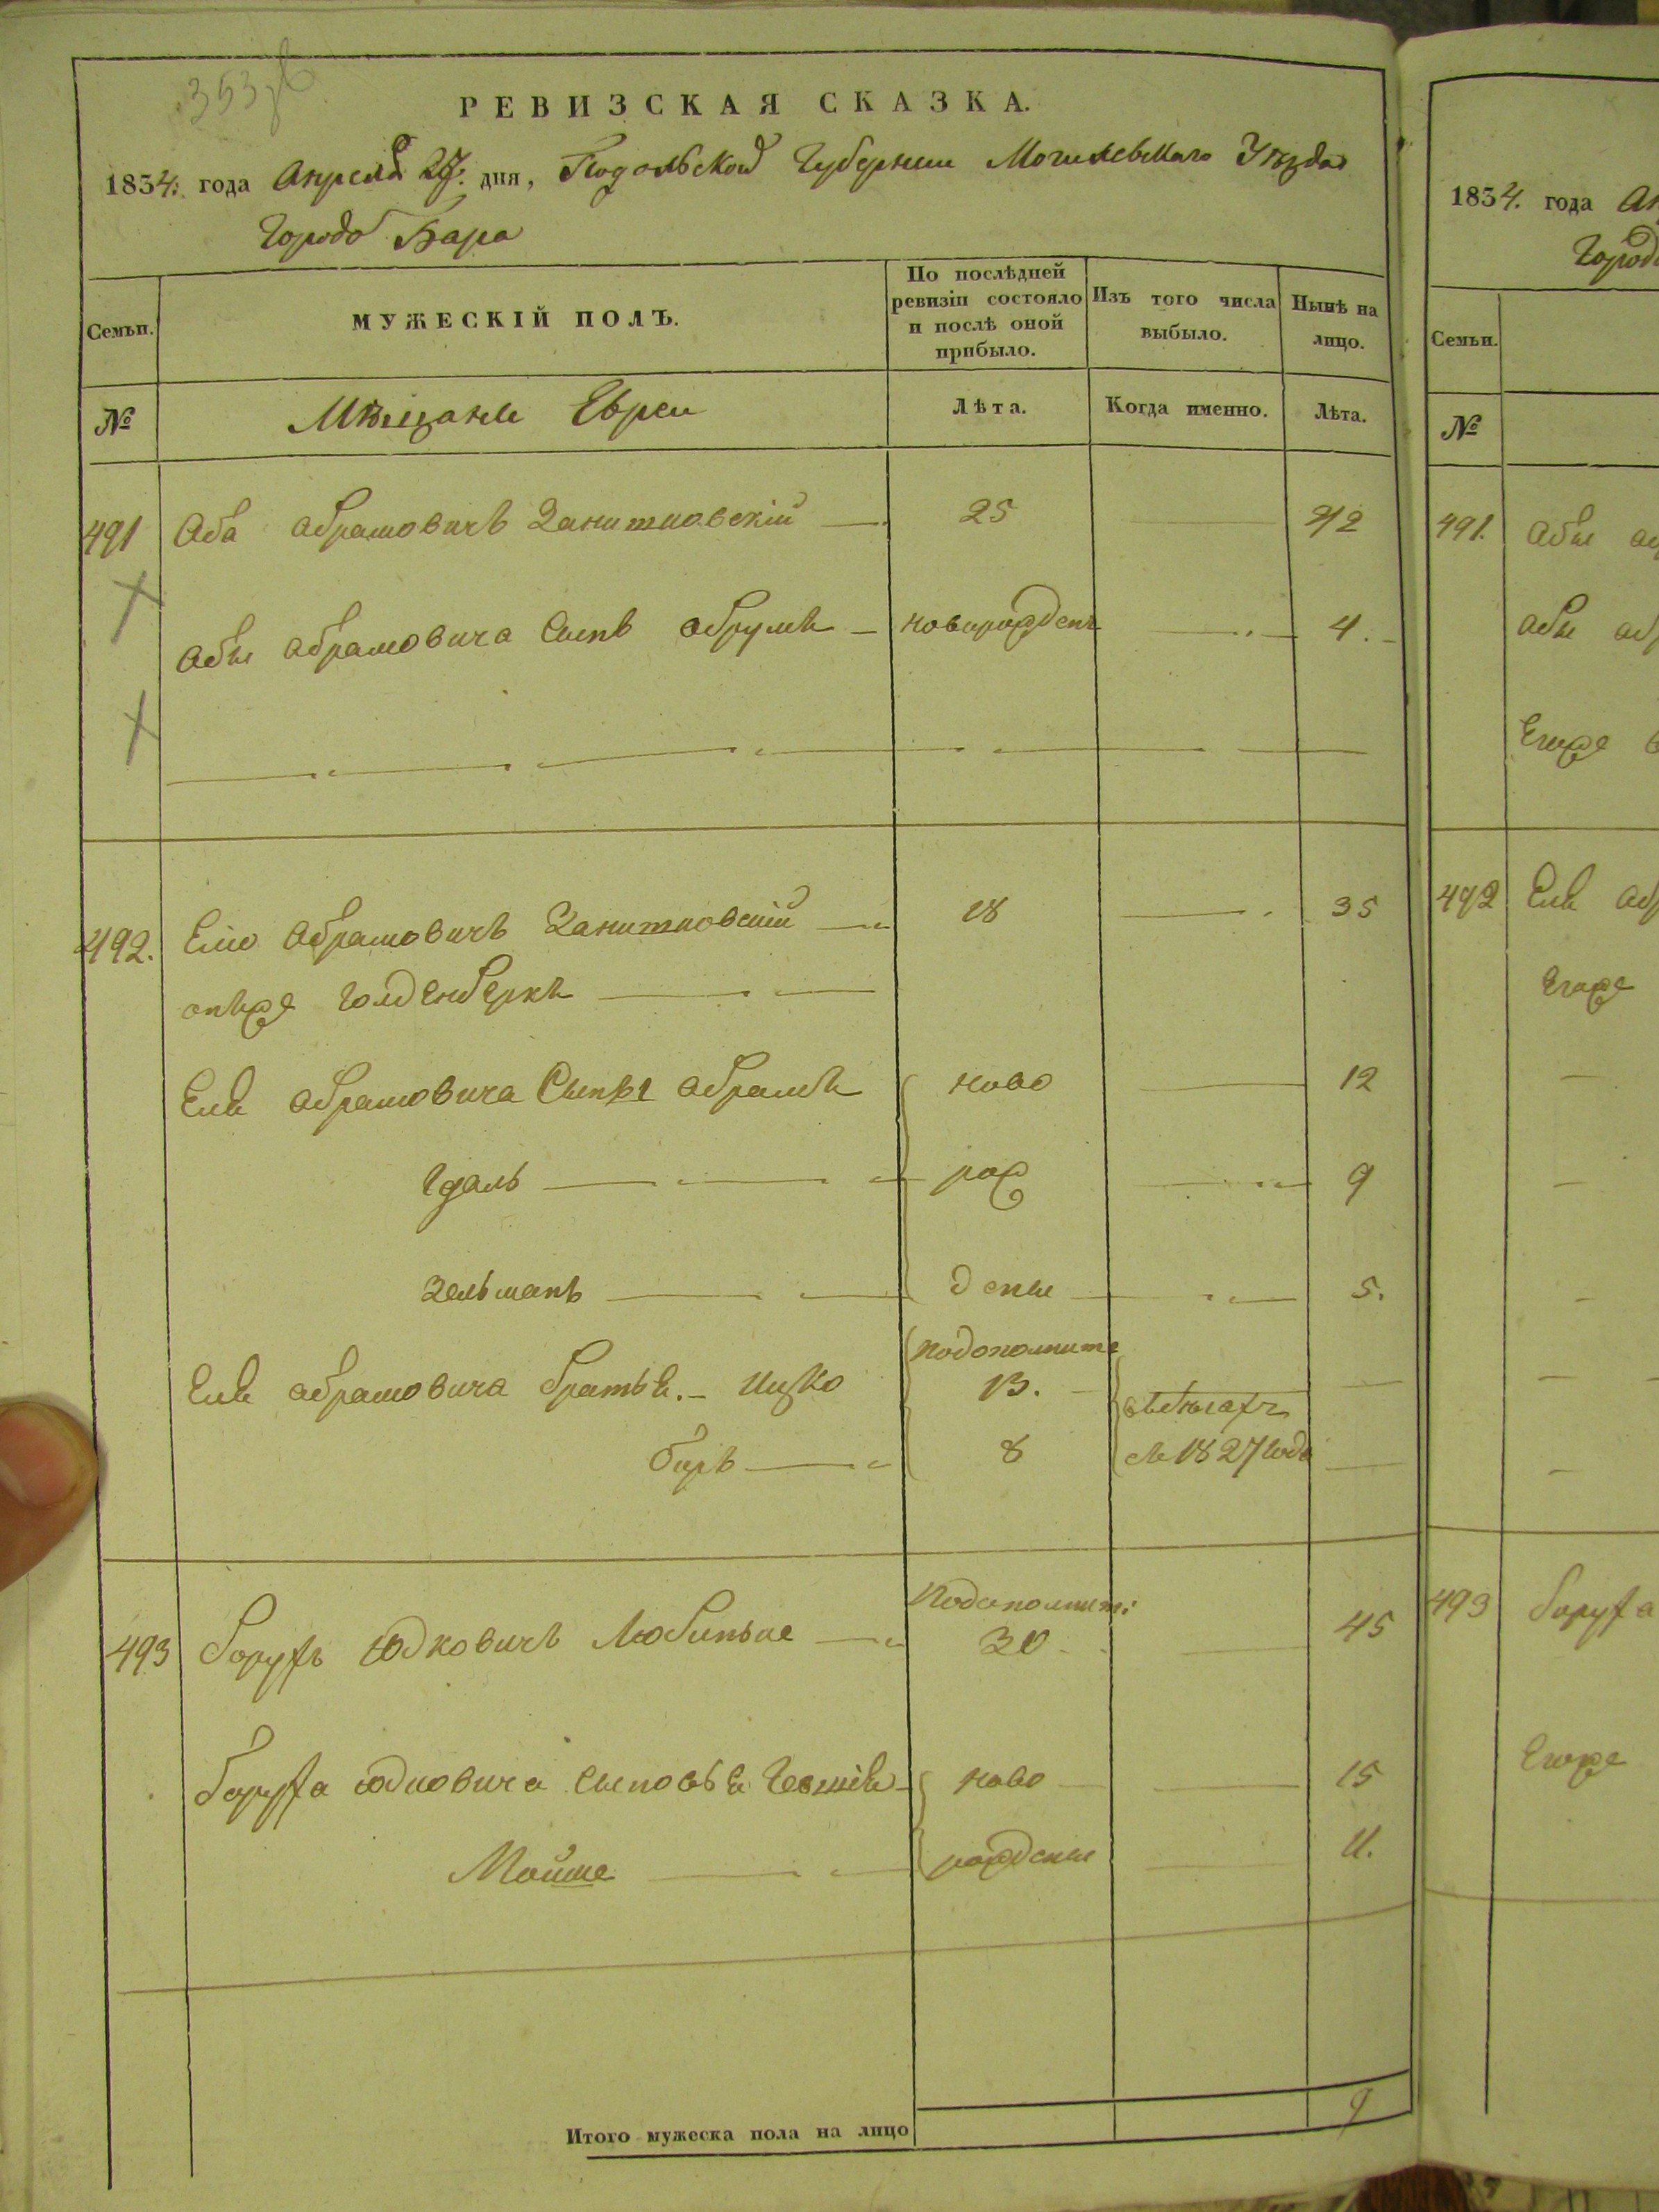 353
РЕВИЗСКАЯ СКАЗКА.
1834. года Апреля 27. дня, Подольской Губернии Могилевскаго Уезда
Города Бара
Семьи.
МУЖЕСКІЙ ПОЛЪ.
По послѣдней ревизіи состояло и послѣ оной прибыло.
Изъ того числа выбыло.
Нынѣ на лицо.
№
Мѣщане Евреи
Лѣта.
Когда именно.
Лѣта.
491 Аба Абрамовичъ Занитковскій 25 42
Абы Абрамовича Сынъ Абрумъ новорожденъ 4.
492. Елю Абрамовичъ Занитковскій 18 35
онъже Голденберкъ
Еля Абрамовича Сыны Абрамъ ново 12
Гдаль рож 9
Зельманъ дены 5.
Еля Абрамовича братья. Ицко 13.
Беръ 8 1827 года
493 Борухъ Юдковичъ 30 45
Боруха Юдковича сыновья ново 15
Мойше рождены 11.
Итого мужеска пола на лицо 9
1834. года
Города
Семьи.
№
491. Абы
Абы
Егоже
492 Еля
Егоже
493 Боруха
Егоже